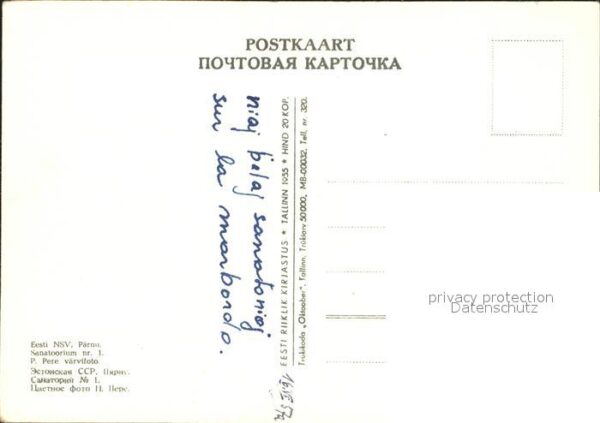 POSTKAART
ПОЧТОВАЯ КАРТОЧКА
niaj belaj sanatorioj
sur la marbordo.
EESTI RIIKLIK KIRJASTUS * TALLINN 1955 * HIND 20 KOP.
Trükikoda „Oktoober", Tallinn. Trükiarv 50 000, MB-00032, Tell. nr. 320.
privacy protection
Datenschutz
Eesti NSV, Pärnu.
Sanatoorium nr. 1.
P. Pere värvifoto.
Эстонская ССР, Пярну.
Санаторий № 1.
Цветное фото П. Пере.